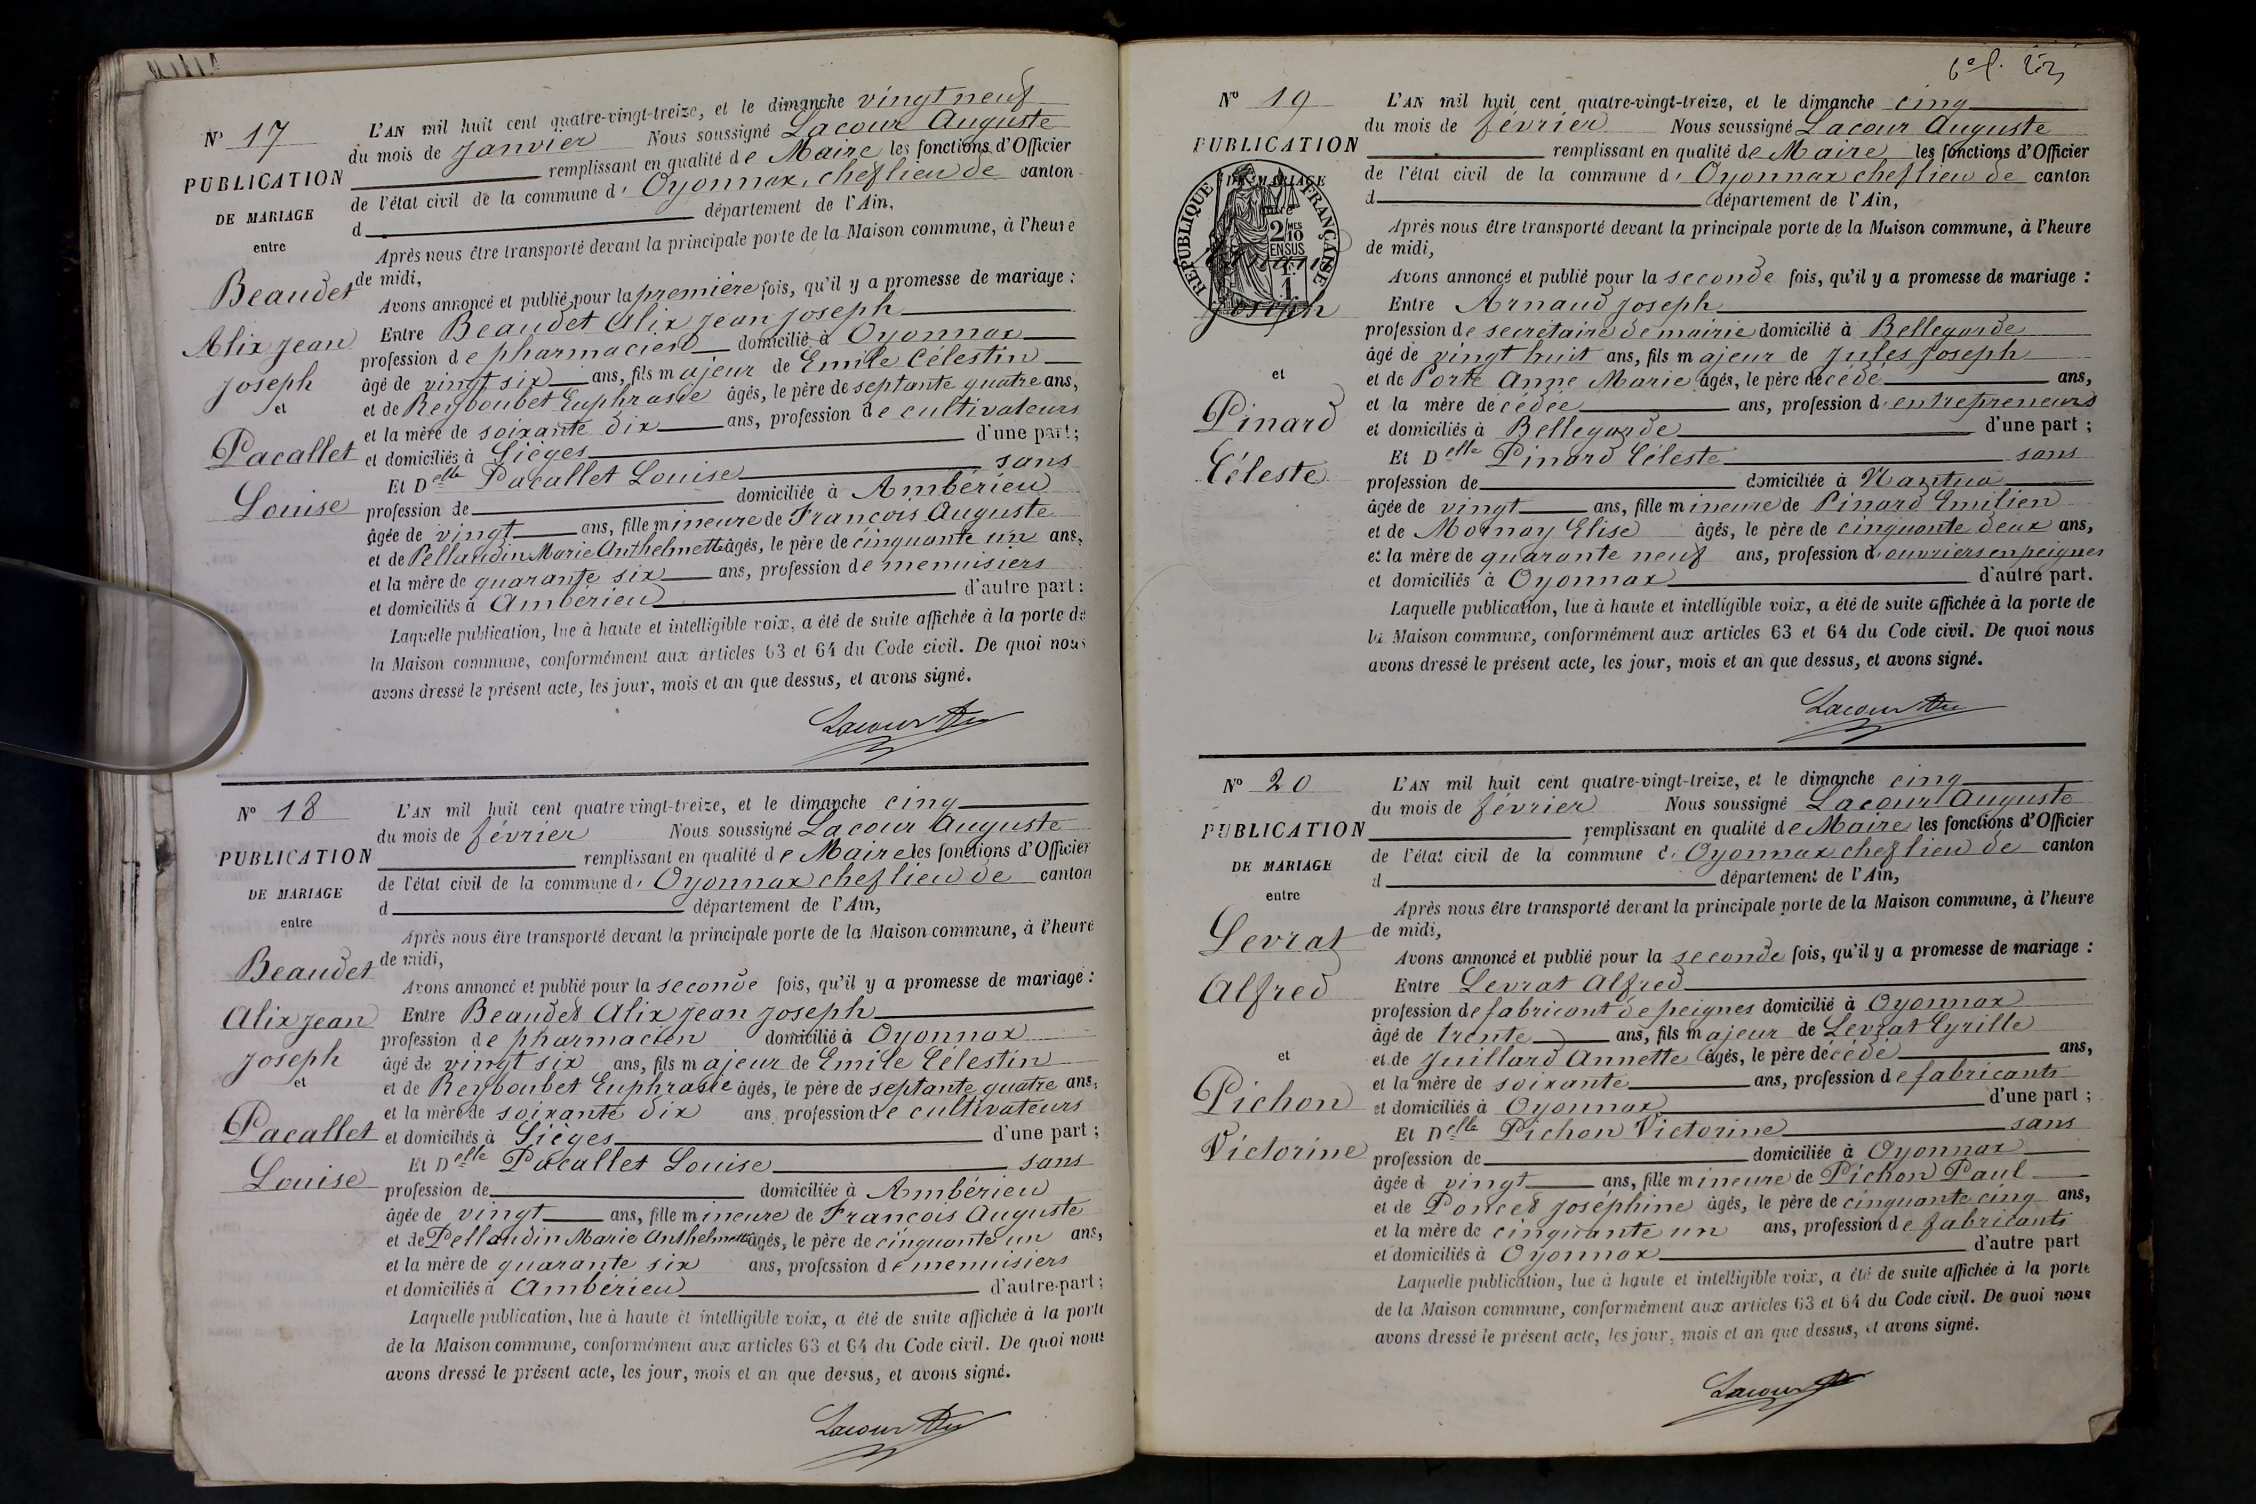 N° 17
PUBLICATION
DE MARIAGE
entre
Beaudet
Alix Jean
Joseph
et
Pacallet
Louise
L'AN mil huit cent quatre-vingt-treize, et le dimanche vingt neuf
du mois de Janvier Nous soussigné Lacour Auguste
remplissant en qualité de Maire les fonctions d'Officier
de l'état civil de la commune d' Oyonnax, chef lieu de canton
d département de l'Ain,
Après nous être transporté devant la principale porte de la Maison commune, à l'heure
de midi,
Avons annoncé et publié pour la première fois, qu'il y a promesse de mariage :
Entre Beaudet Alix Jean Joseph
profession de pharmacien domicilié à Oyonnax
âgé de vingt six ans, fils majeur de Emile Célestin
et de Reyboubet Euphrasie âgés, le père de septante quatre ans,
et la mère de soixante dix ans, profession de cultivateurs
et domiciliés à Sièges d'une part;
Et Delle Pacallet Louise sans
profession de domiciliée à Ambérieu
âgée de vingt ans, fille mineure de François Auguste
et de Pellaudin Marie Anthelmette âgés, le père de cinquante un ans,
et la mère de quarante six ans, profession de menuisiers
et domiciliés à Ambérieu d'autre part:
Laquelle publication, lue à haute et intelligible voix, a été de suite affichée à la porte de
la Maison commune, conformément aux articles 63 et 64 du Code civil. De quoi nous
avons dressé le présent acte, les jour, mois et an que dessus, et avons signé.
Lacour Au
N° 18
PUBLICATION
DE MARIAGE
entre
Beaudet
Alix Jean
Joseph
et
Pacallet
Louise
L'AN mil huit cent quatre vingt-treize, et le dimanche cinq
du mois de février Nous soussigné Lacour Auguste
remplissant en qualité de Maire les fonctions d'Officier
de l'état civil de la commune d' Oyonnax chef lieu de canton
d département de l'Ain,
Après nous être transporté devant la principale porte de la Maison commune, à l'heure
de midi,
Avons annoncé et publié pour la seconde fois, qu'il y a promesse de mariage :
Entre Beaudet Alix Jean Joseph
profession de pharmacien domicilié à Oyonnax
âgé de vingt six ans, fils majeur de Emile Célestin
et de Reyboubet Euphrasie âgés, le père de septante quatre ans,
et la mère de soixante dix ans, profession de cultivateurs
et domiciliés à Sièges d'une part ;
Et Delle Pacallet Louise sans
profession de domiciliée à Ambérieu
âgée de vingt ans, fille mineure de François Auguste
et de Pellaudin Marie Anthelmette âgés, le père de cinquante un ans,
et la mère de quarante six ans, profession de menuisiers
et domiciliés à Ambérieu d'autre part;
Laquelle publication, lue à haute et intelligible voix, a été de suite affichée à la porte
de la Maison commune, conformément aux articles 63 et 64 du Code civil. De quoi nous
avons dressé le présent acte, les jour, mois et an que dessus, et avons signé.
Lacour Au
N° 19
PUBLICATION
DE MARIAGE
RÉPUBLIQUE FRANÇAISE
2 MES
10
EN SUS
1
Joseph
et
Pinard
Céleste
L'AN mil huit cent quatre-vingt-treize, et le dimanche cinq
du mois de février Nous soussigné Lacour Auguste
remplissant en qualité de Maire les fonctions d'Officier
de l'état civil de la commune d' Oyonnax chef lieu de canton
d département de l'Ain,
Après nous être transporté devant la principale porte de la Maison commune, à l'heure
de midi,
Avons annoncé et publié pour la seconde fois, qu'il y a promesse de mariage :
Entre Arnaud Joseph
profession de secrétaire de mairie domicilié à Bellegarde
âgé de vingt huit ans, fils majeur de Jules Joseph
et de Porte Anne Marie âgés, le père décédé ans,
et la mère de cédée ans, profession d' entrepreneurs
et domiciliés à Bellegarde d'une part ;
Et Delle Pinard Céleste sans
profession de domiciliée à Nantua
âgée de vingt ans, fille mineure de Pinard Emilien
et de Mornay Elise âgés, le père de cinquante deux ans,
et la mère de quarante neuf ans, profession d' ouvriers en peignes
et domiciliés à Oyonnax d'autre part.
Laquelle publication, lue à haute et intelligible voix, a été de suite affichée à la porte de
la Maison commune, conformément aux articles 63 et 64 du Code civil. De quoi nous
avons dressé le présent acte, les jour, mois et an que dessus, et avons signé.
Lacour Au
N° 20
PUBLICATION
DE MARIAGE
entre
Levrat
Alfred
et
Pichon
Victorine
L'AN mil huit cent quatre-vingt-treize, et le dimanche cinq
du mois de février Nous soussigné Lacour Auguste
remplissant en qualité de Maire les fonctions d'Officier
de l'état civil de la commune d' Oyonnax chef lieu de canton
d département de l'Ain,
Après nous être transporté devant la principale porte de la Maison commune, à l'heure
de midi,
Avons annoncé et publié pour la seconde fois, qu'il y a promesse de mariage :
Entre Levrat Alfred
profession de fabricant de peignes domicilié à Oyonnax
âgé de trente ans, fils majeur de Levrat Cyrille
et de Juillard Annette âgés, le père décédé ans,
et la mère de soixante ans, profession de fabricants
et domiciliés à Oyonnax d'une part ;
Et Delle Pichon Victorine sans
profession de domiciliée à Oyonnax
âgée d vingt ans, fille mineure de Pichon Paul
et de Poncet Joséphine âgés, le père de cinquante cinq ans,
et la mère de cinquante un ans, profession de fabricants
et domiciliés à Oyonnax d'autre part
Laquelle publication, lue à haute et intelligible voix, a été de suite affichée à la porte
de la Maison commune, conformément aux articles 63 et 64 du Code civil. De quoi nous
avons dressé le présent acte, les jour, mois et an que dessus, et avons signé.
Lacour